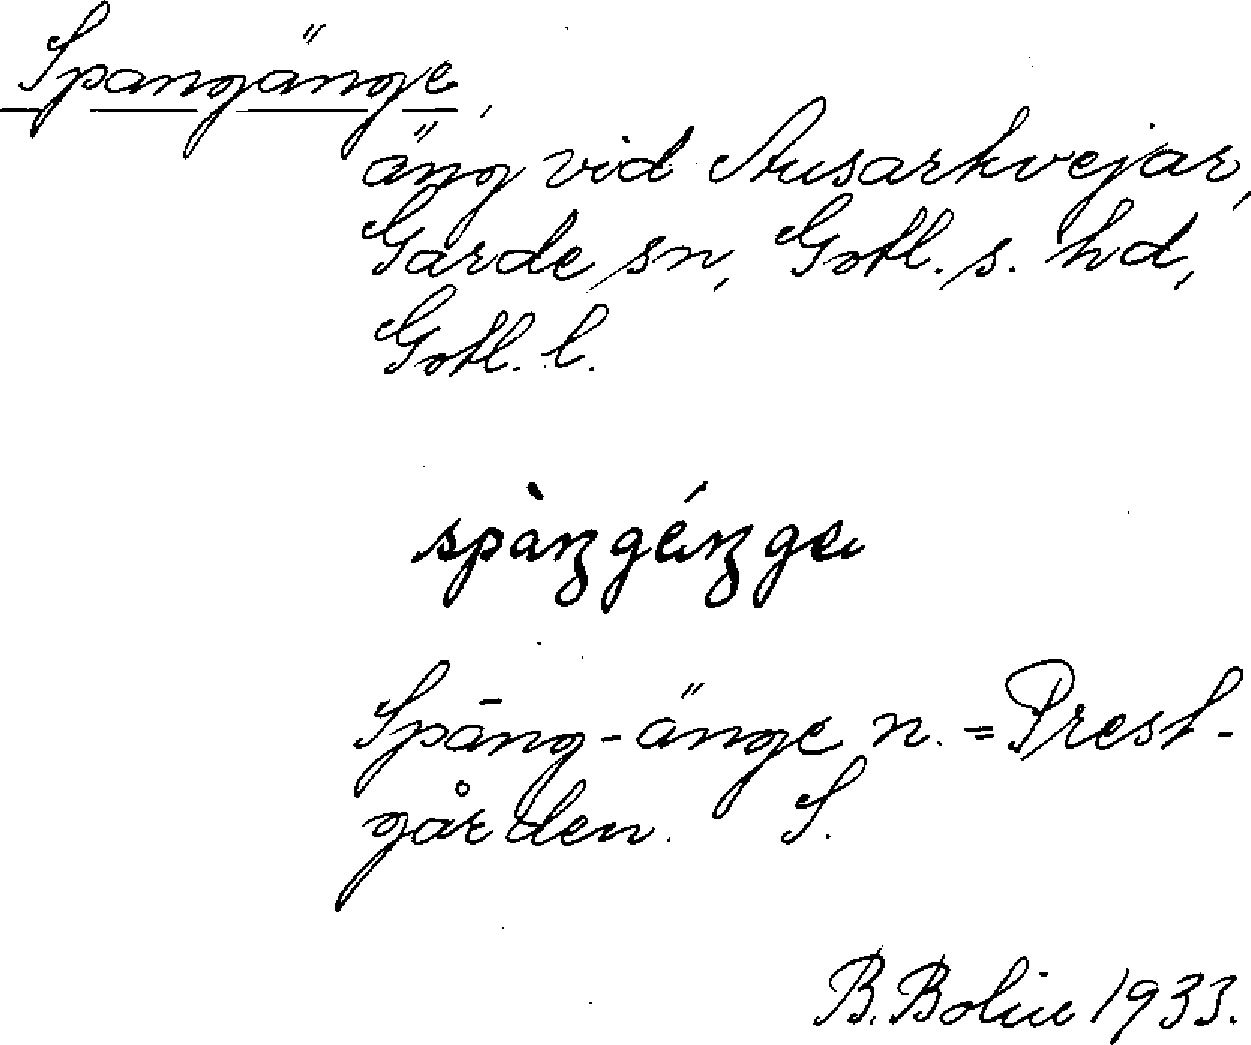 Spangänge,
äng vid Ausarkvejar,
Garde sn, Gotl. s. hd,
Gotl. l.
spàŋgéŋge
Spāng-änge n. = Prest-
gården. S.
B. Bolin 1933.